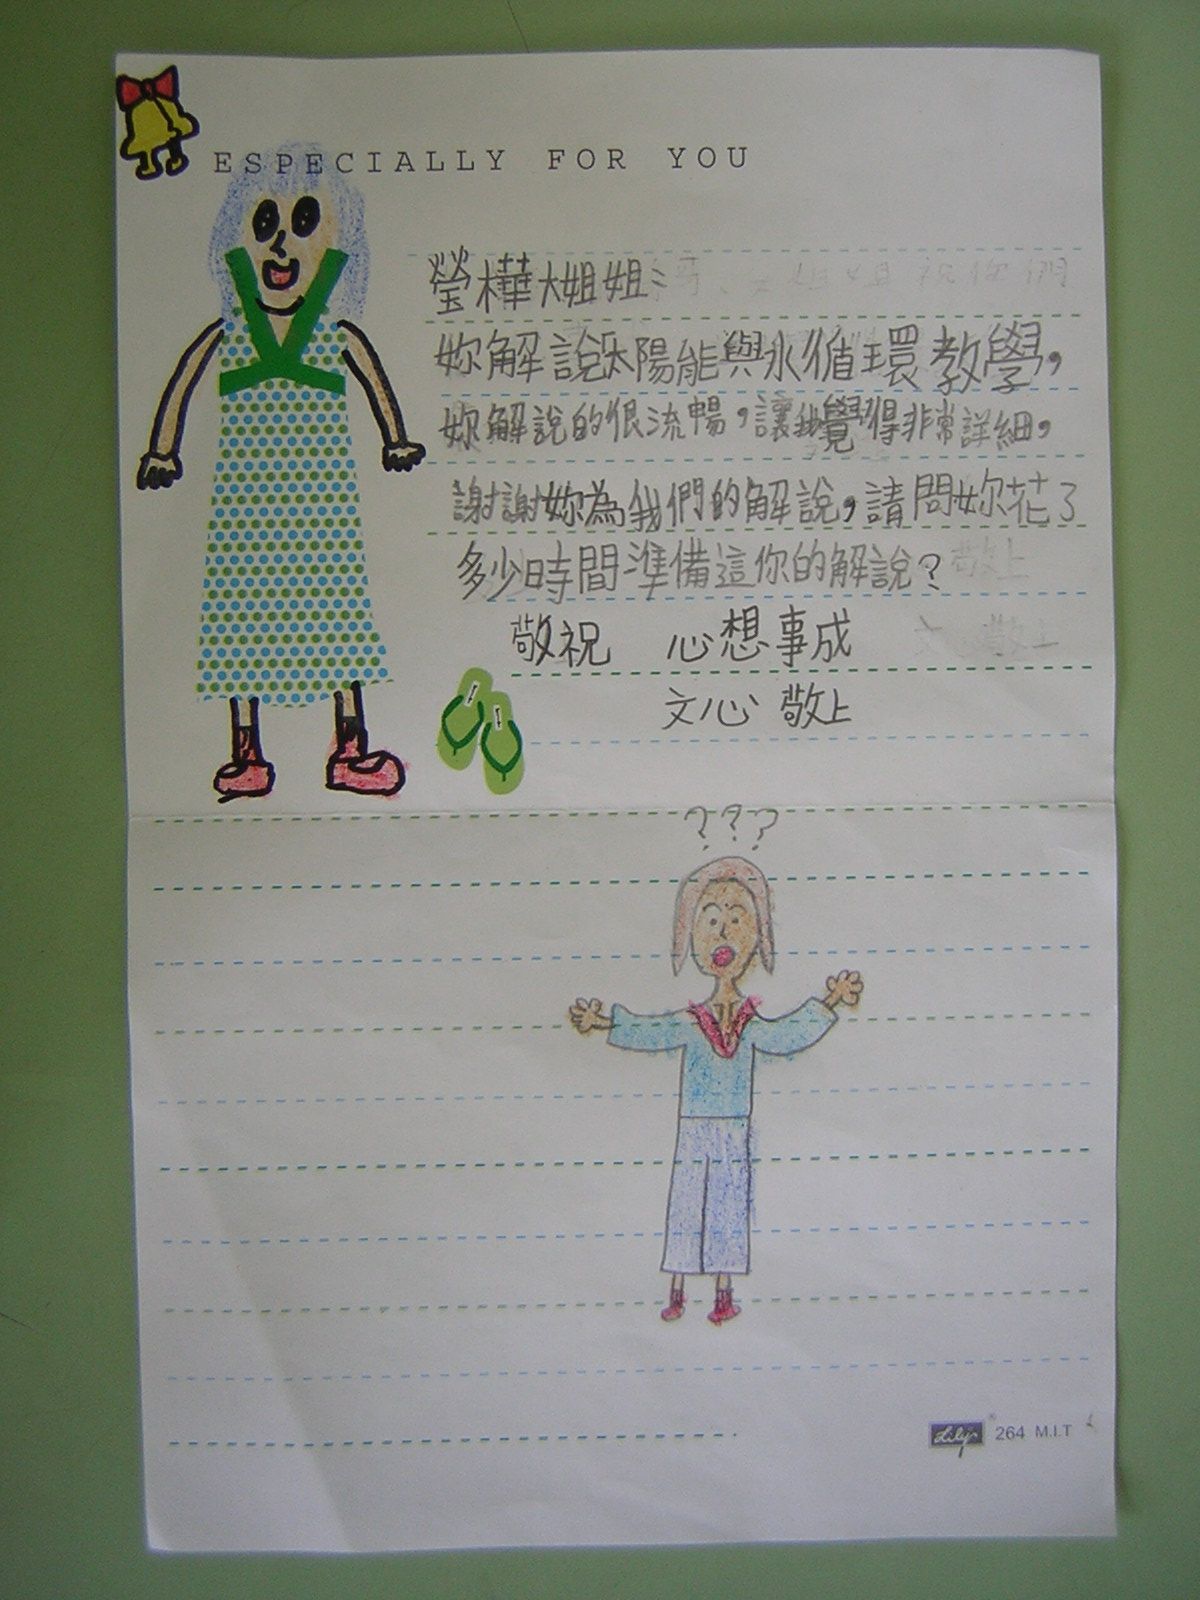 ESPECIALLY FOR YOU
瑩樺大姐姐:
妳解說太陽能與水循環教學,
妳解說的很流暢,讓我覺得非常詳細,
謝謝妳為我們的解說,請問妳花了
多少時間準備這你的解說?
敬祝 心想事成
文心 敬上
???
Lily 264 M.I.T